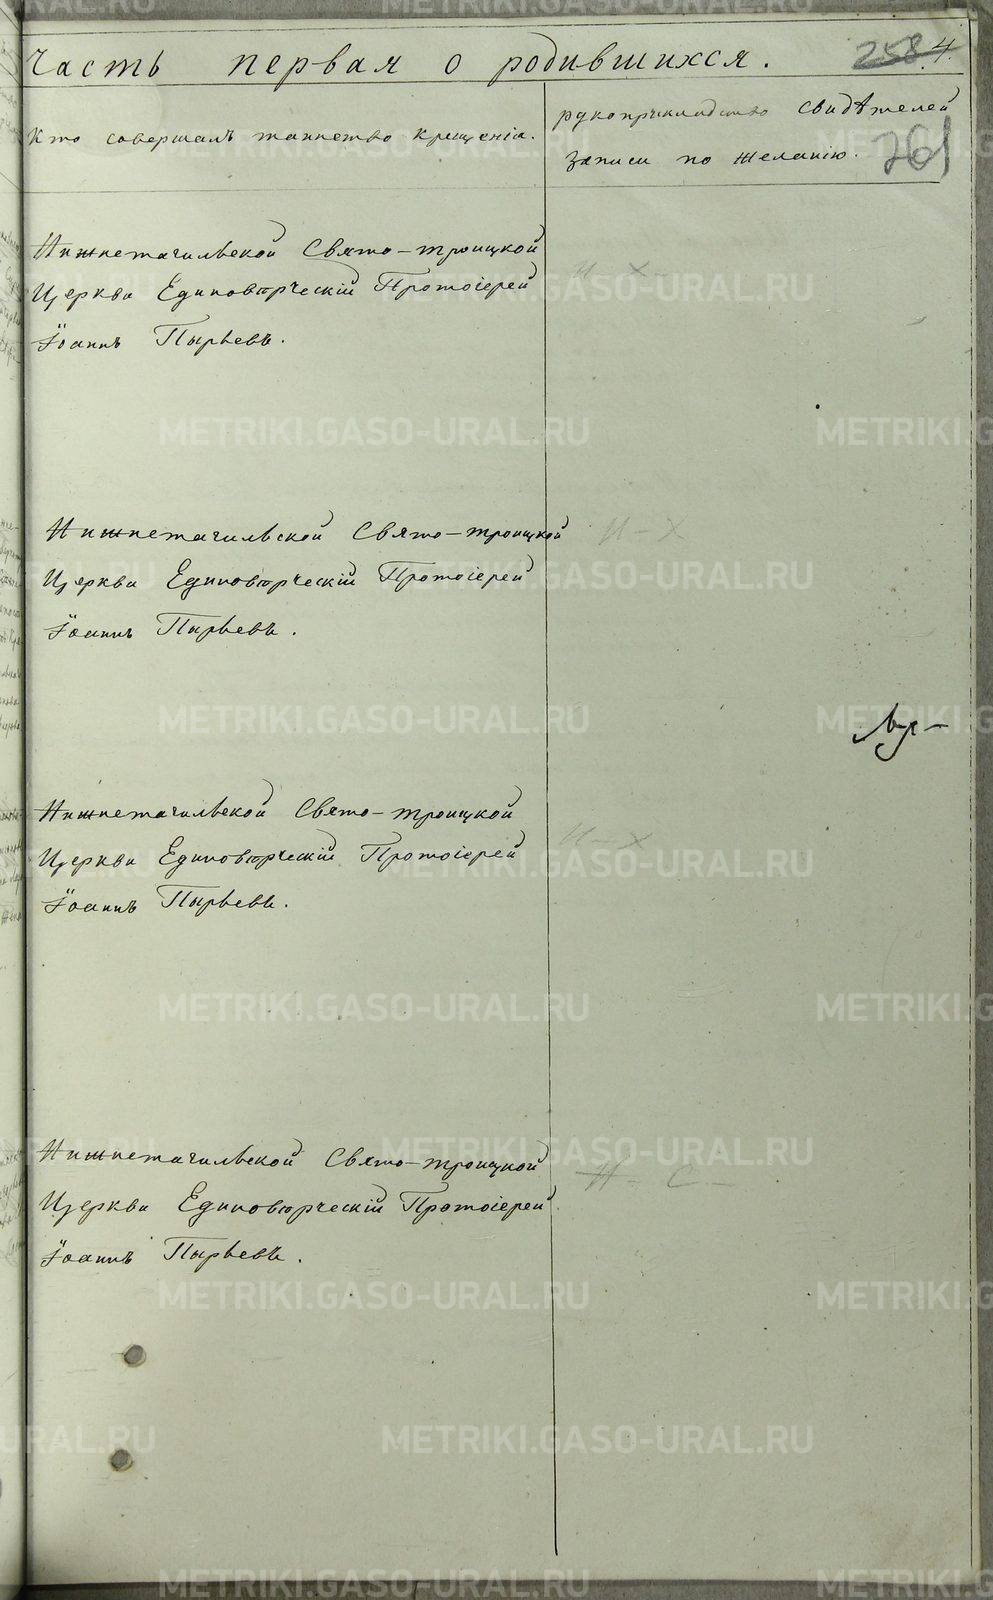 Часть первая о родившихся.
258 4
Кто совершалъ таинство крещенія.
рукоприкладство свидѣтелей
записи по желанію.
261
Нижнетагильской Свято-троицкой
Церкви Единовѣрческій Протоіерей
Іоаннъ Пырьевъ.
Н-Х
Нижнетагильской Свято-троицкой
Церкви Единовѣрческій Протоіерей
Іоаннъ Пырьевъ.
Н-Х
Нижнетагильской Свято-троицкой
Церкви Единовѣрческій Протоіерей
Іоаннъ Пырьевъ.
Н-Х
Нижнетагильской Свято-троицкой
Церкви Единовѣрческій Протоіерей
Іоаннъ Пырьевъ.
Н-С-
METRIKI.GASO-URAL.RU